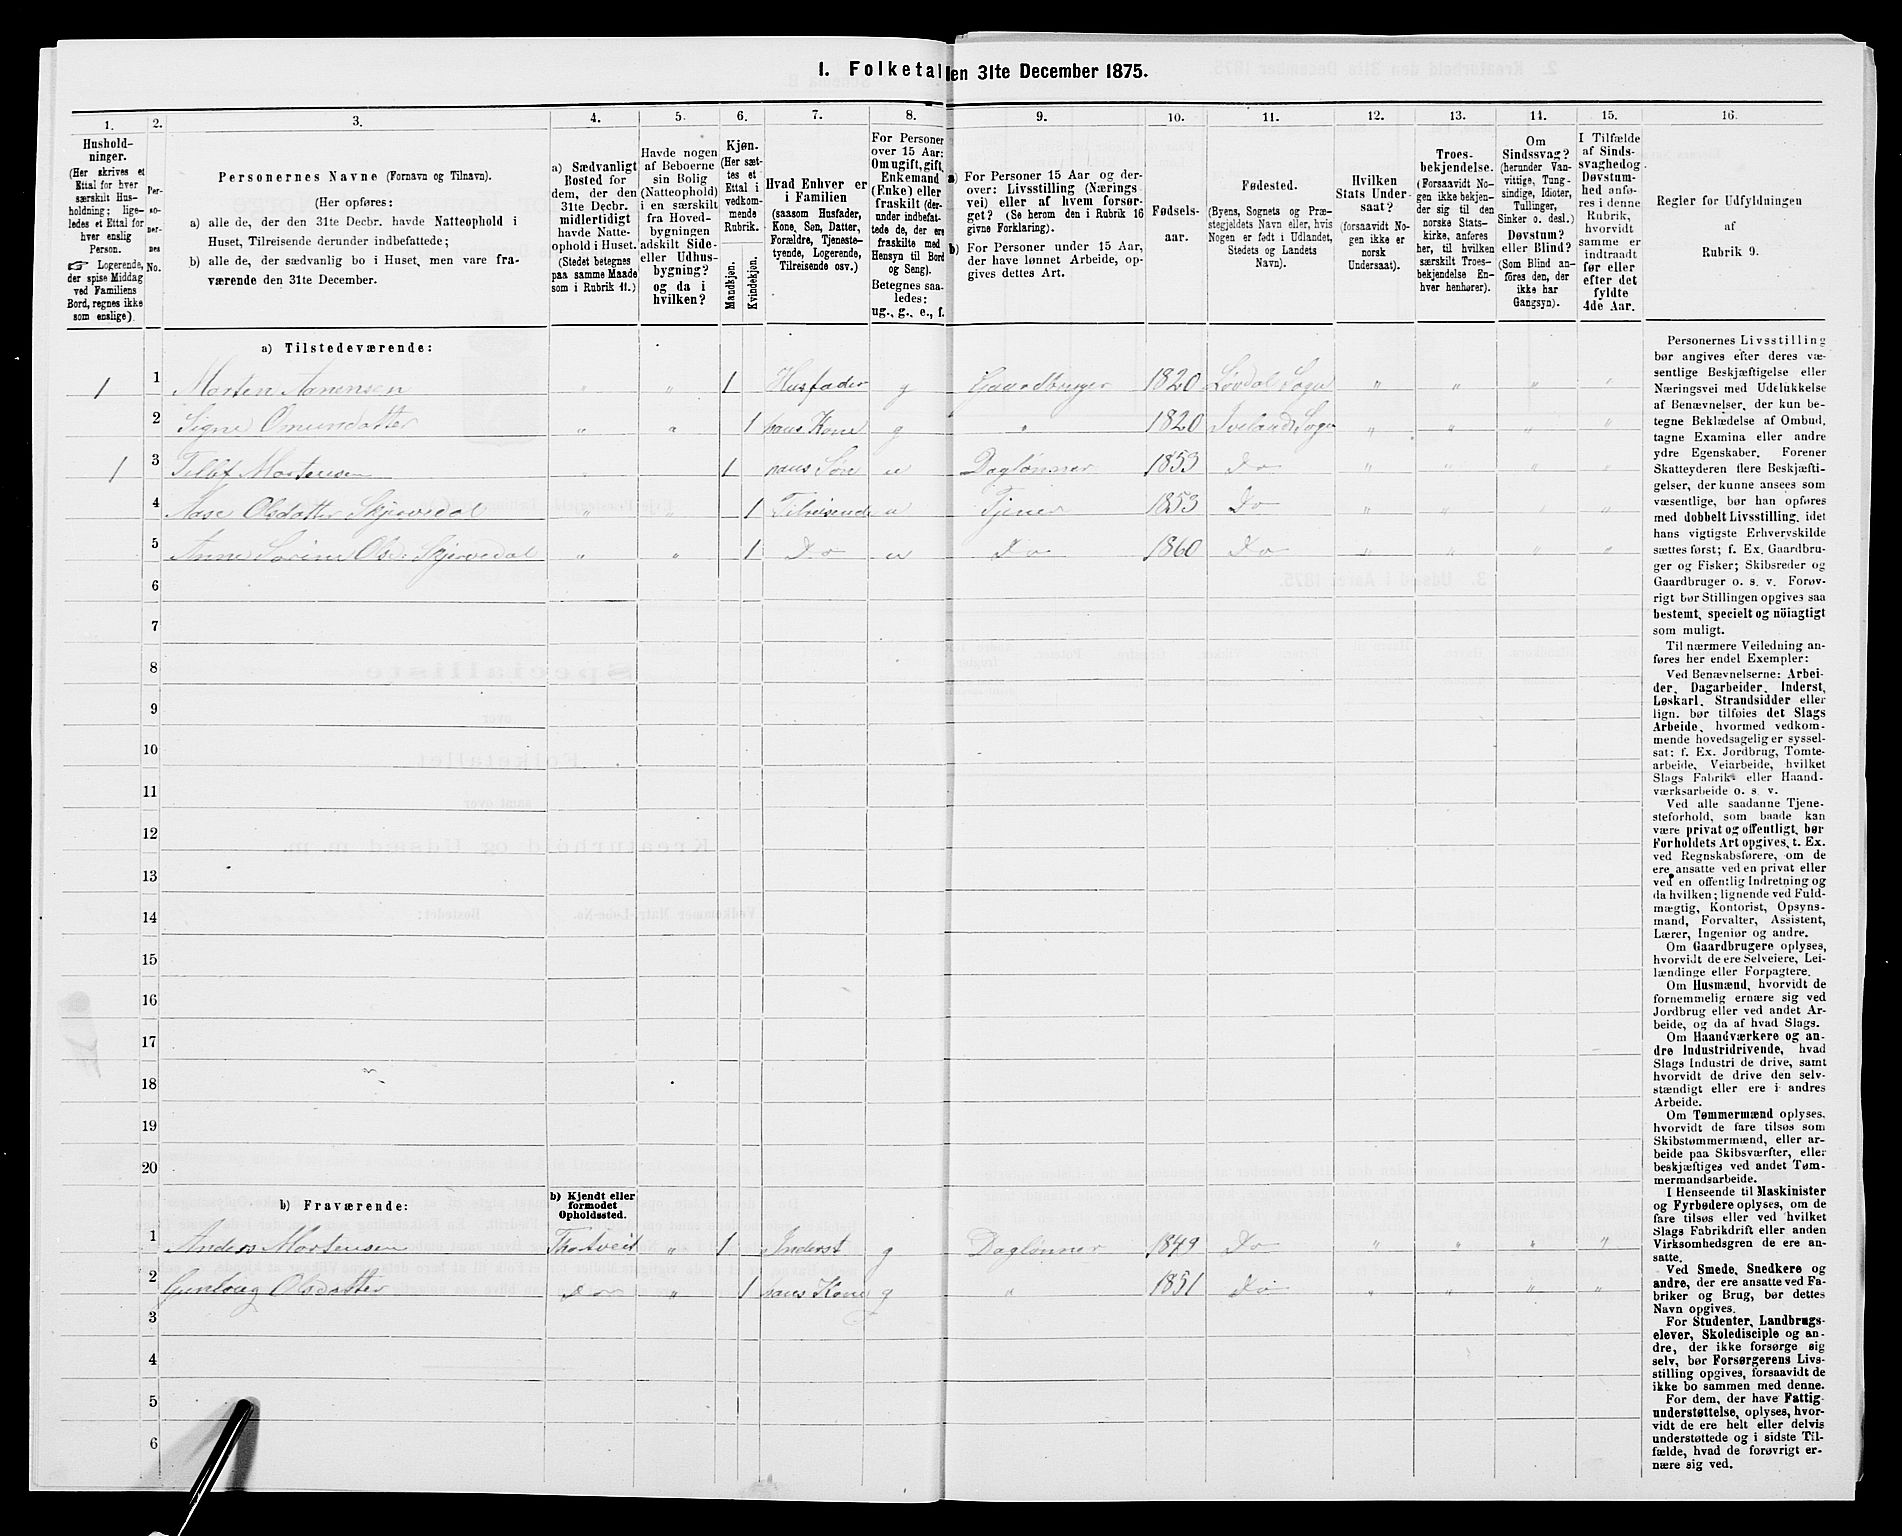 I. Folketallen 31te December 1875.
1. 2. 3. 4. 5. 6. 7. 8. 9. 10. 11. 12. 13. 14. 15. 16.
Hushold-
ninger.
(Her skrives et
Ettal for hver
særskilt Hus-
holdning; lige-
ledes et Ettal for
hver enslig
Person.
☞ Logerende,
der spise Middag
ved Familiens
Bord, regnes ikke
som enslige).
Per-
so-
ner-
nes
No.
Personernes Navne (Fornavn og Tilnavn).
(Her opføres:
a) alle de, der den 31te Decbr. havde Natteophold i
Huset, Tilreisende derunder indbefattede;
b) alle de, der sædvanlig bo i Huset, men vare fra-
værende den 31te December.
a) Sædvanligt
Bosted for
dem, der den
31te Decbr.
midlertidigt
havde Natte-
ophold i Huset.
(Stedet betegnes
paa samme Maade
som i Rubrik 11.)
Havde nogen
af Beboerne
sin Bolig
(Natteophold)
i en særskilt
fra Hoved-
bygningen
adskilt Side-
eller Udhus-
bygning?
og da i
hvilken?
Kjøn.
(Her sæt-
tes et
Ettal i
vedkom-
mende
Rubrik.
Mandkjøn.
Kvindekjøn.
Hvad Enhver er
i Familien
(saasom Husfader,
Kone, Søn, Datter,
Forældre, Tjeneste-
tyende, Logerende,
Tilreisende osv.)
For Personer
over 15 Aar:
Om ugift, gift,
Enkemand
(Enke) eller
fraskilt (der-
under indbefat-
tede de, der ere
fraskilte med
Hensyn til Bord
og Seng).
Betegnes saa-
ledes:
ug., g., e., f.
a) For Personer 15 Aar og der-
over: Livsstilling (Nærings-
vei) eller af hvem forsør-
get? (Se herom den i Rubrik 16
givne Forklaring).
b) For Personer under 15 Aar,
der have lønnet Arbeide, op-
gives dettes Art.
Fødsels-
aar.
Fødested.
(Byens, Sognets og Præ-
stegjeldets Navn eller, hvis
Nogen er født i Udlandet,
Stedets og Landets
Navn).
Hvilken
Stats Under-
saat?
(forsaavidt No-
gen ikke er
norsk
Undersaat).
Troes-
bekjendelse.
(Forsaavidt No-
gen ikke bekjen-
der sig til den
norske Stats-
kirke, anføres
her, til hvilken
særskilt Troes-
bekjendelse En-
hver henhører).
Om
Sindssvag?
(herunder Van-
vittige, Tung-
sindige, Idioter,
Tullinger,
Sinker o. desl.)
Døvstum?
eller Blind?
(Som Blind an-
føres den, der
ikke har
Gangsyn).
I Tilfælde
af Sinds-
svaghed og
Døvstum-
hed anfø-
res i denne
Rubrik,
hvorvidt
samme er
indtraadt
før eller
efter det
fyldte
4de Aar.
Regler for Udfyldningen
af
Rubrik 9.
a) Tilstedeværende:
1 1 Morten Aanensen " " 1 Husfader g Gaardbruger 1820 Løvdal Sogn " " " "
2 Signe Omundsdatter " " 1 hans Kone g " 1820 Ivelands Sogn " " " "
1 3 Tellef Mortensen " 1 hans Søn u Daglønner 1853 Do " " " "
4 Aase Olsdatter Skjervedal " " 1 Tilreisende u Tjener 1853 Do " " " "
5 Anne Sorine Olsd: Skjervedal " " 1 Do u Do 1860 Do " " " "
6
7
8
9
10
11
12
13
14
15
16
17
18
19
20
b) Fraværende:
b) Kjendt eller
formodet
Opholdssted.
1 Anders Mortensen Thortveit " 1 Inderst g Daglønner 1849 Do " " " "
2 Gunborg Olsdatter Do " 1 hans Kone g " 1851 Do " " " "
3
4
5
6
Personernes Livsstilling
bør angives efter deres væ-
sentlige Beskjæftigelse eller
Næringsvei med Udelukkelse
af Benævnelser, der kun be-
tegne Beklædelse af Ombud,
tagne Examina eller andre
ydre Egenskaber. Forener
Skatteyderen flere Beskjæfti-
gelser, der kunne ansees som
væsentlige, bør han opføres
med dobbelt Livsstilling, idet
hans vigtigste Erhvervskilde
sættes først; f. Ex. Gaardbru-
ger og Fisker; Skibsreder og
Gaardbruger o. s. v. Forøv-
rigt bør Stillingen opgives saa
bestemt, specielt og nöiagtigt
som muligt.
Til nærmere Veiledning an-
føres her endel Exempler:
Ved Benævnelserne: Arbei-
der, Dagarbeider, Inderst,
Løskarl, Strandsidder eller
lign. bør tilføies det Slags
Arbeide, hvormed vedkom-
mende hovedsagelig er syssel-
sat; f. Ex. Jordbrug, Tomte-
arbeide, Veiarbeide, hvilket
Slags Fabrik- eller Haand-
værksarbeide o. s. v.
Ved alle saadanne Tjene-
steforhold, som baade kan
være privat og offentligt, bør
Forholdets Art opgives, t. Ex.
ved Regnskabsførere, om de
ere ansatte ved en privat eller
ved en offentlig Indretning og
da hvilken; lignende ved Fuld-
mægtig, Kontorist, Opsyns-
mand, Forvalter, Assistent,
Lærer, Ingeniør og andre.
Om Gaardbrugere oplyses,
hvorvidt de ere Selveiere, Lei-
lændinge eller Forpagtere.
Om Husmænd, hvorvidt de
fornemmelig ernære sig ved
Jordbrug eller ved andet Ar-
beide, og da af hvad Slags.
Om Haandværkere og an-
dre Industridrivende, hvad
Slags Industri de drive, samt
hvorvidt de drive den selv-
stændigt eller ere i andres
Arbeide.
Om Tømmermænd oplyses,
hvorvidt de fare tilsøs som
Skibstømmermænd, eller ar-
beide paa Skibsværfter, eller
beskjæftiges ved andet Tøm-
mermandsarbeide.
I Henseende til Maskinister
og Fyrbødere oplyses, om de
fare tilsøs eller ved hvilket
Slags Fabrikdrift eller anden
Virksomhedsgren de ere an-
satte.
Ved Smede, Snedkere og
andre, der ere ansatte ved Fa-
briker og Brug, bør dettes
Navn opgives.
For Studenter, Landbrugs-
elever, Skoledisciple og an-
dre, der ikke forsørge sig
selv, bør Forsørgerens Livs-
stilling opgives, forsaavidt de
ikke bo sammen med denne.
For dem, der have Fattig-
understøttelse, oplyses, hvor-
vidt de ere helt eller delvis
understøttede og i sidste Til-
fælde, hvad de forøvrigt er-
nære sig ved.